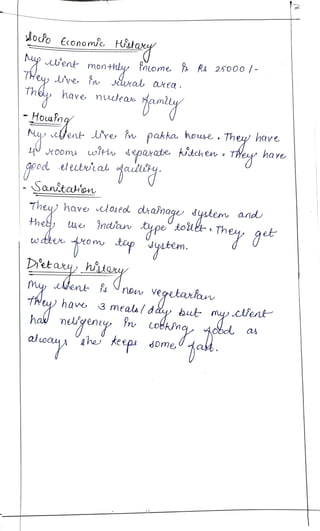 Socio Economic History
My client monthly income is Rs 25000/-
They live in rural area.
They have nuclear family
- Housing
My client live in pakka house. They have
4 rooms with separate kitchen. They have
good electrical facility.
- Sanitation
They have closed drainage system and
they use indian type toilet. They get
water from tap system.
Dietary history
My client is non vegetarian
They have 3 meals/day but my client
has neligency in cooking food as
always she keeps some fast.